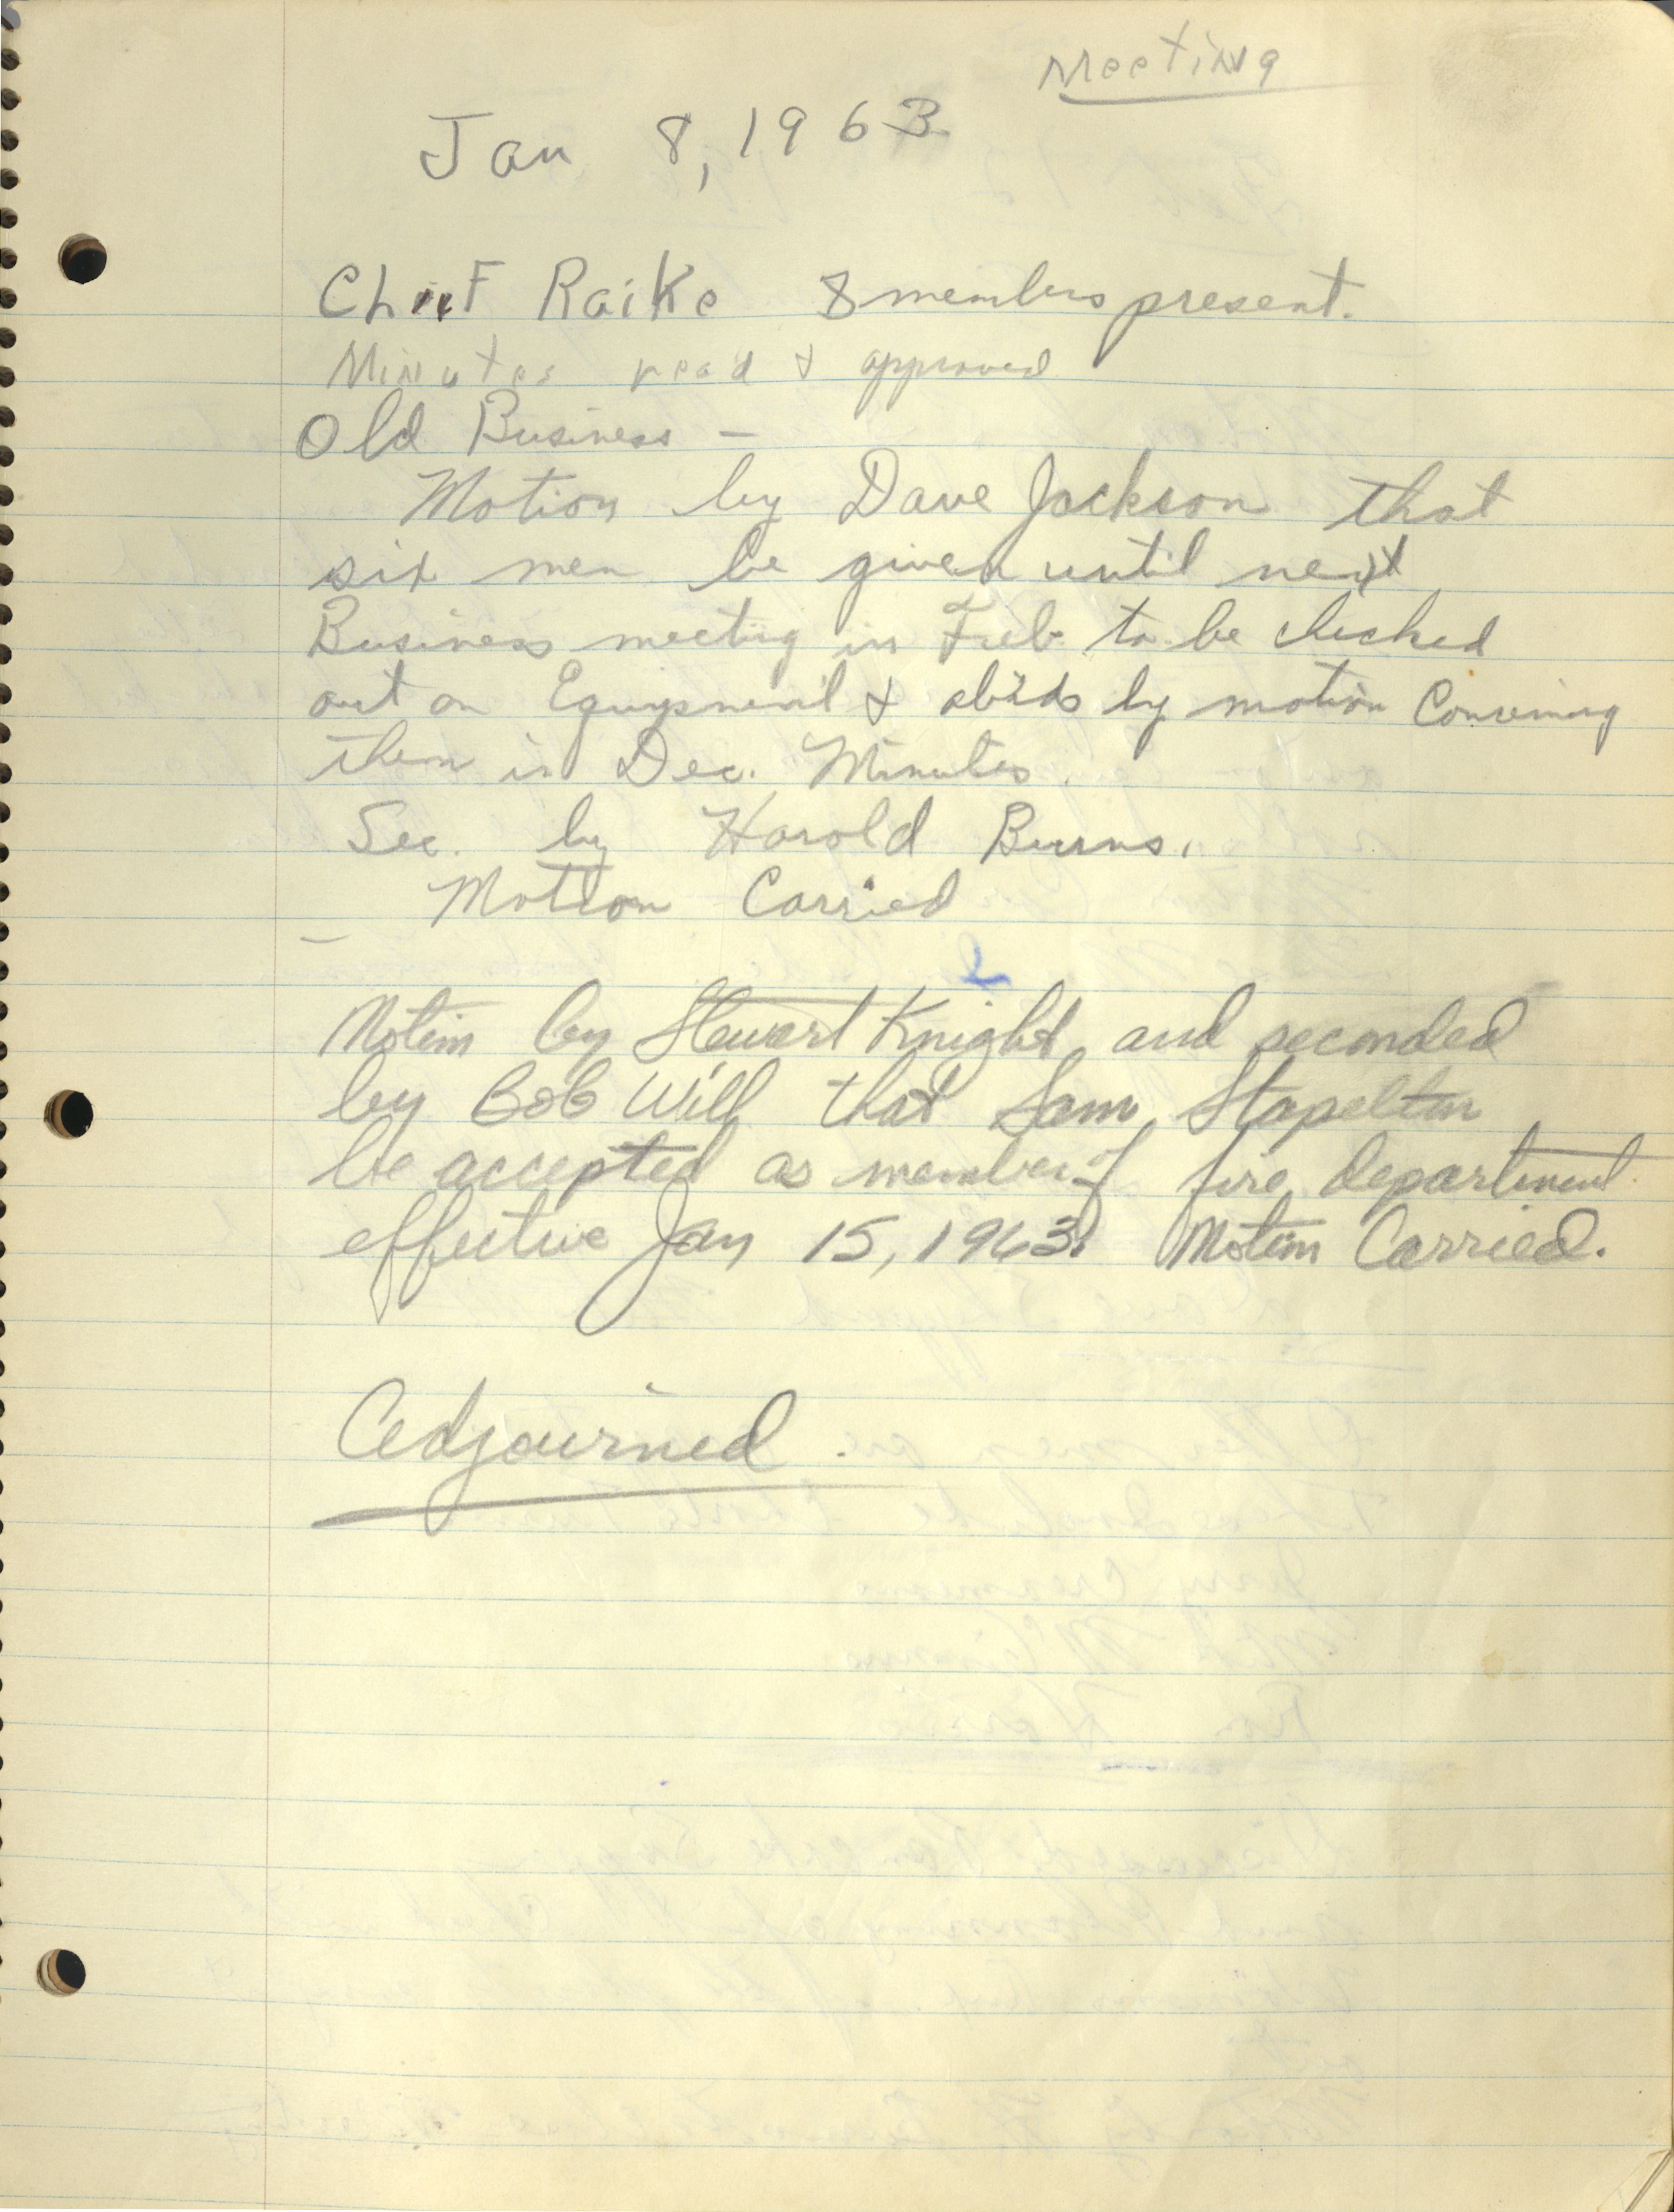 Meeting
Jan 8, 1963
Chief Raike 8 members present.
Minutes read & approved
Old Business -
Motion by Dave Jackson that
six men be given until next
Business meeting in Feb. to be checked
out on Equipment & abide by motion Concerning
them in Dec. Minutes.
Sec. by Harold Burns.
Motion Carried
Motion by Stewart Knight, and seconded
by Bob Will that Sam Stapelton
be accepted as member of fire department
effective Jan 15, 1963. Motion Carried.
Adjourned.